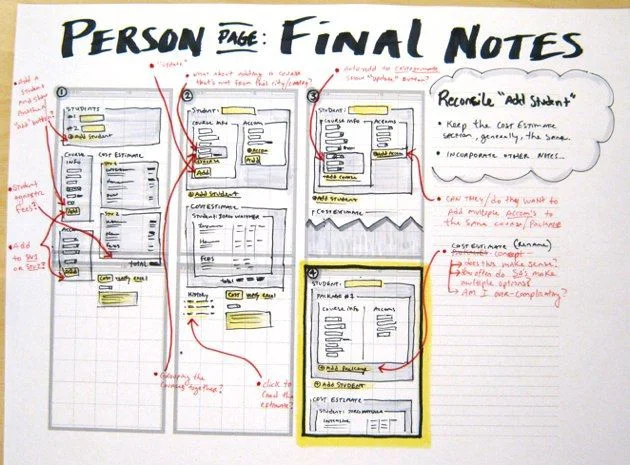 PERSON PAGE: FINAL NOTES
• ADD A
STUDENT
AND STUFF
ANOTHER
"ADD" BUTTON?
• Student
agnostic
Fees?
• Add
to Stu1
or Stu2?
①
STUDENTS
#1
#2
⊕ Add Student
Course
Info
Add
Accom
Add
COST ESTIMATE
Stu 1
Stu 2
TOTAL
COST VERIFY EMAIL
• "UPDATE"
• WHAT ABOUT ADDING A COURSE
THAT'S NOT FROM THAT CITY/COUNTRY?
②
Student:
COURSE INFO
Add
Accom
⊕ Accom
Add
⊕ Add Student
COST ESTIMATE
Student:
FEES
TOTAL
HISTORY
COST VERIFY EMAIL
• Grouping the
courses together?
• click to
load the
estimate?
• Auto-add to cost estimate
"Update" Button?
③
STUDENT:
Course Info
Accoms
⊕ ADD COURSE
⊕ ADD Accom
⊕ Add Student
COST ESTIMATE
④
STUDENT:
PACKAGE #1
COURSE INFO
Accoms
⊕ Add Package
⊕ ADD STUDENT
COST ESTIMATE
STUDENT:
Reconcile "Add Student"
• Keep the Cost Estimate
section, generally, the same.
• INCORPORATE OTHER NOTES...
• CAN THEY/do they WANT to
Add multiple Accom's to
the same course/PACKAGE
COST ESTIMATE (RENAME)
CONCEPT
Does this make sense?
How often do SA's make
multiple options?
• Am I over-complicating?